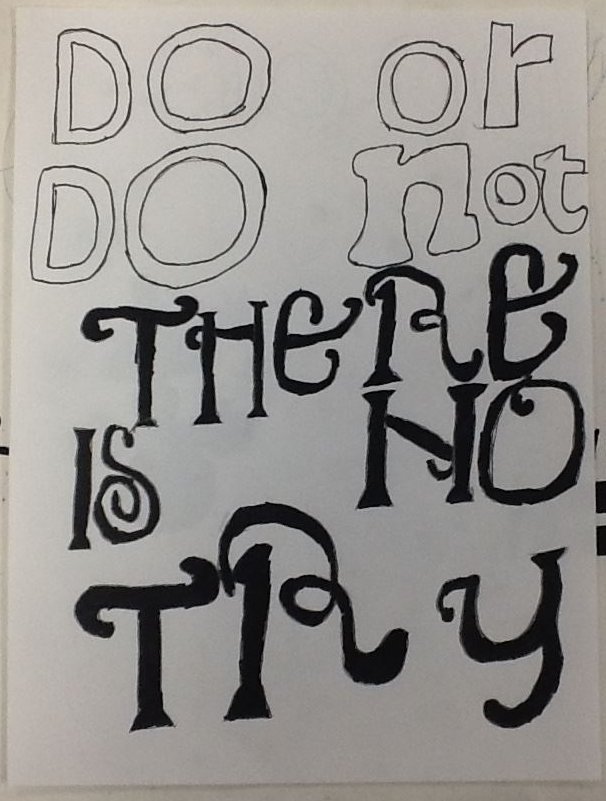 DO or
DO not
THERE
IS NO
TRY